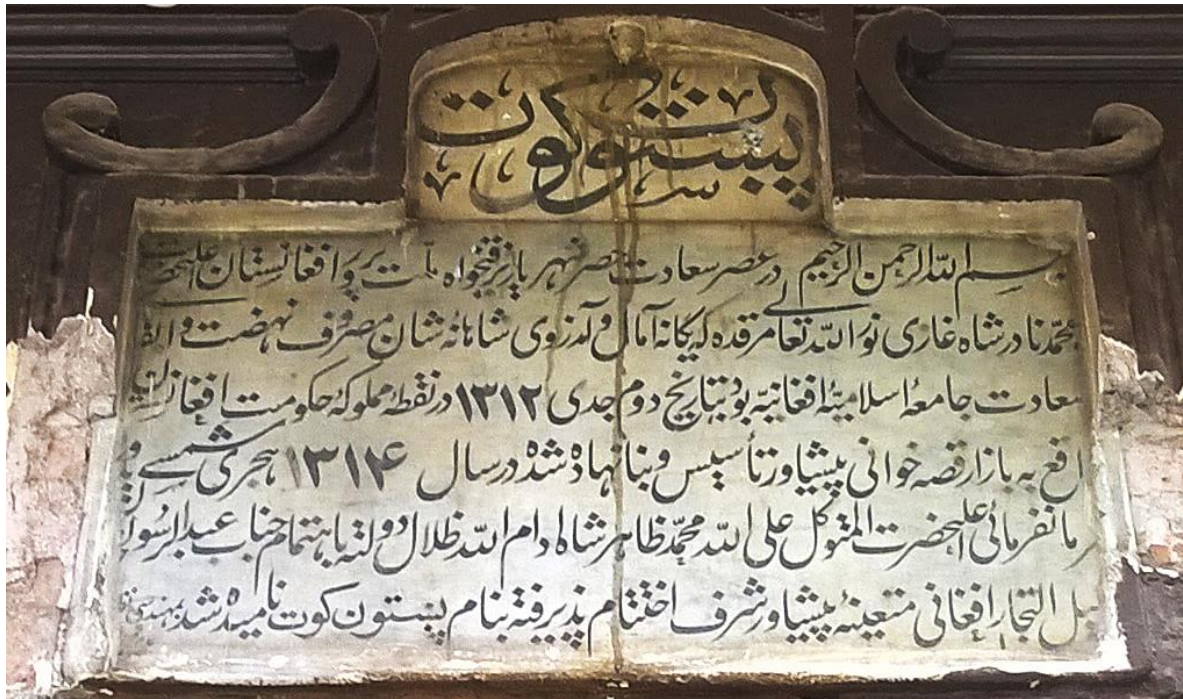 پښتون کوت
بسم الله الرحمن الرحیم در عصر سعادت حصر شهریار ترقیخواه ملت پرور افغانستان علیحضرت
محمد نادر شاه غازی نورالله تعالی مرقده که یگانه آمال و آرزوی شاهانه شان مصروف نهضت و
سعادت جامعهٔ اسلامیهٔ افغانیه بود بتاریخ دوم جدی ۱۳۱۲ در نقطه مملوکهٔ حکومت
واقع به بازار قصه خوانی پیشاور تأسیس و بنا نهاده شده در سال ۱۳۱۴ هجری شمسی
فرمانفرمائی اعلیحضرت المتوکل علی الله محمد ظاهر شاه ادام الله ظلال دولته باهتمام جناب عبدالرسول
التجار افغانی متعینهٔ پیشاور شرف اختتام پذیرفته بنام پښتون کوت نامیده شد